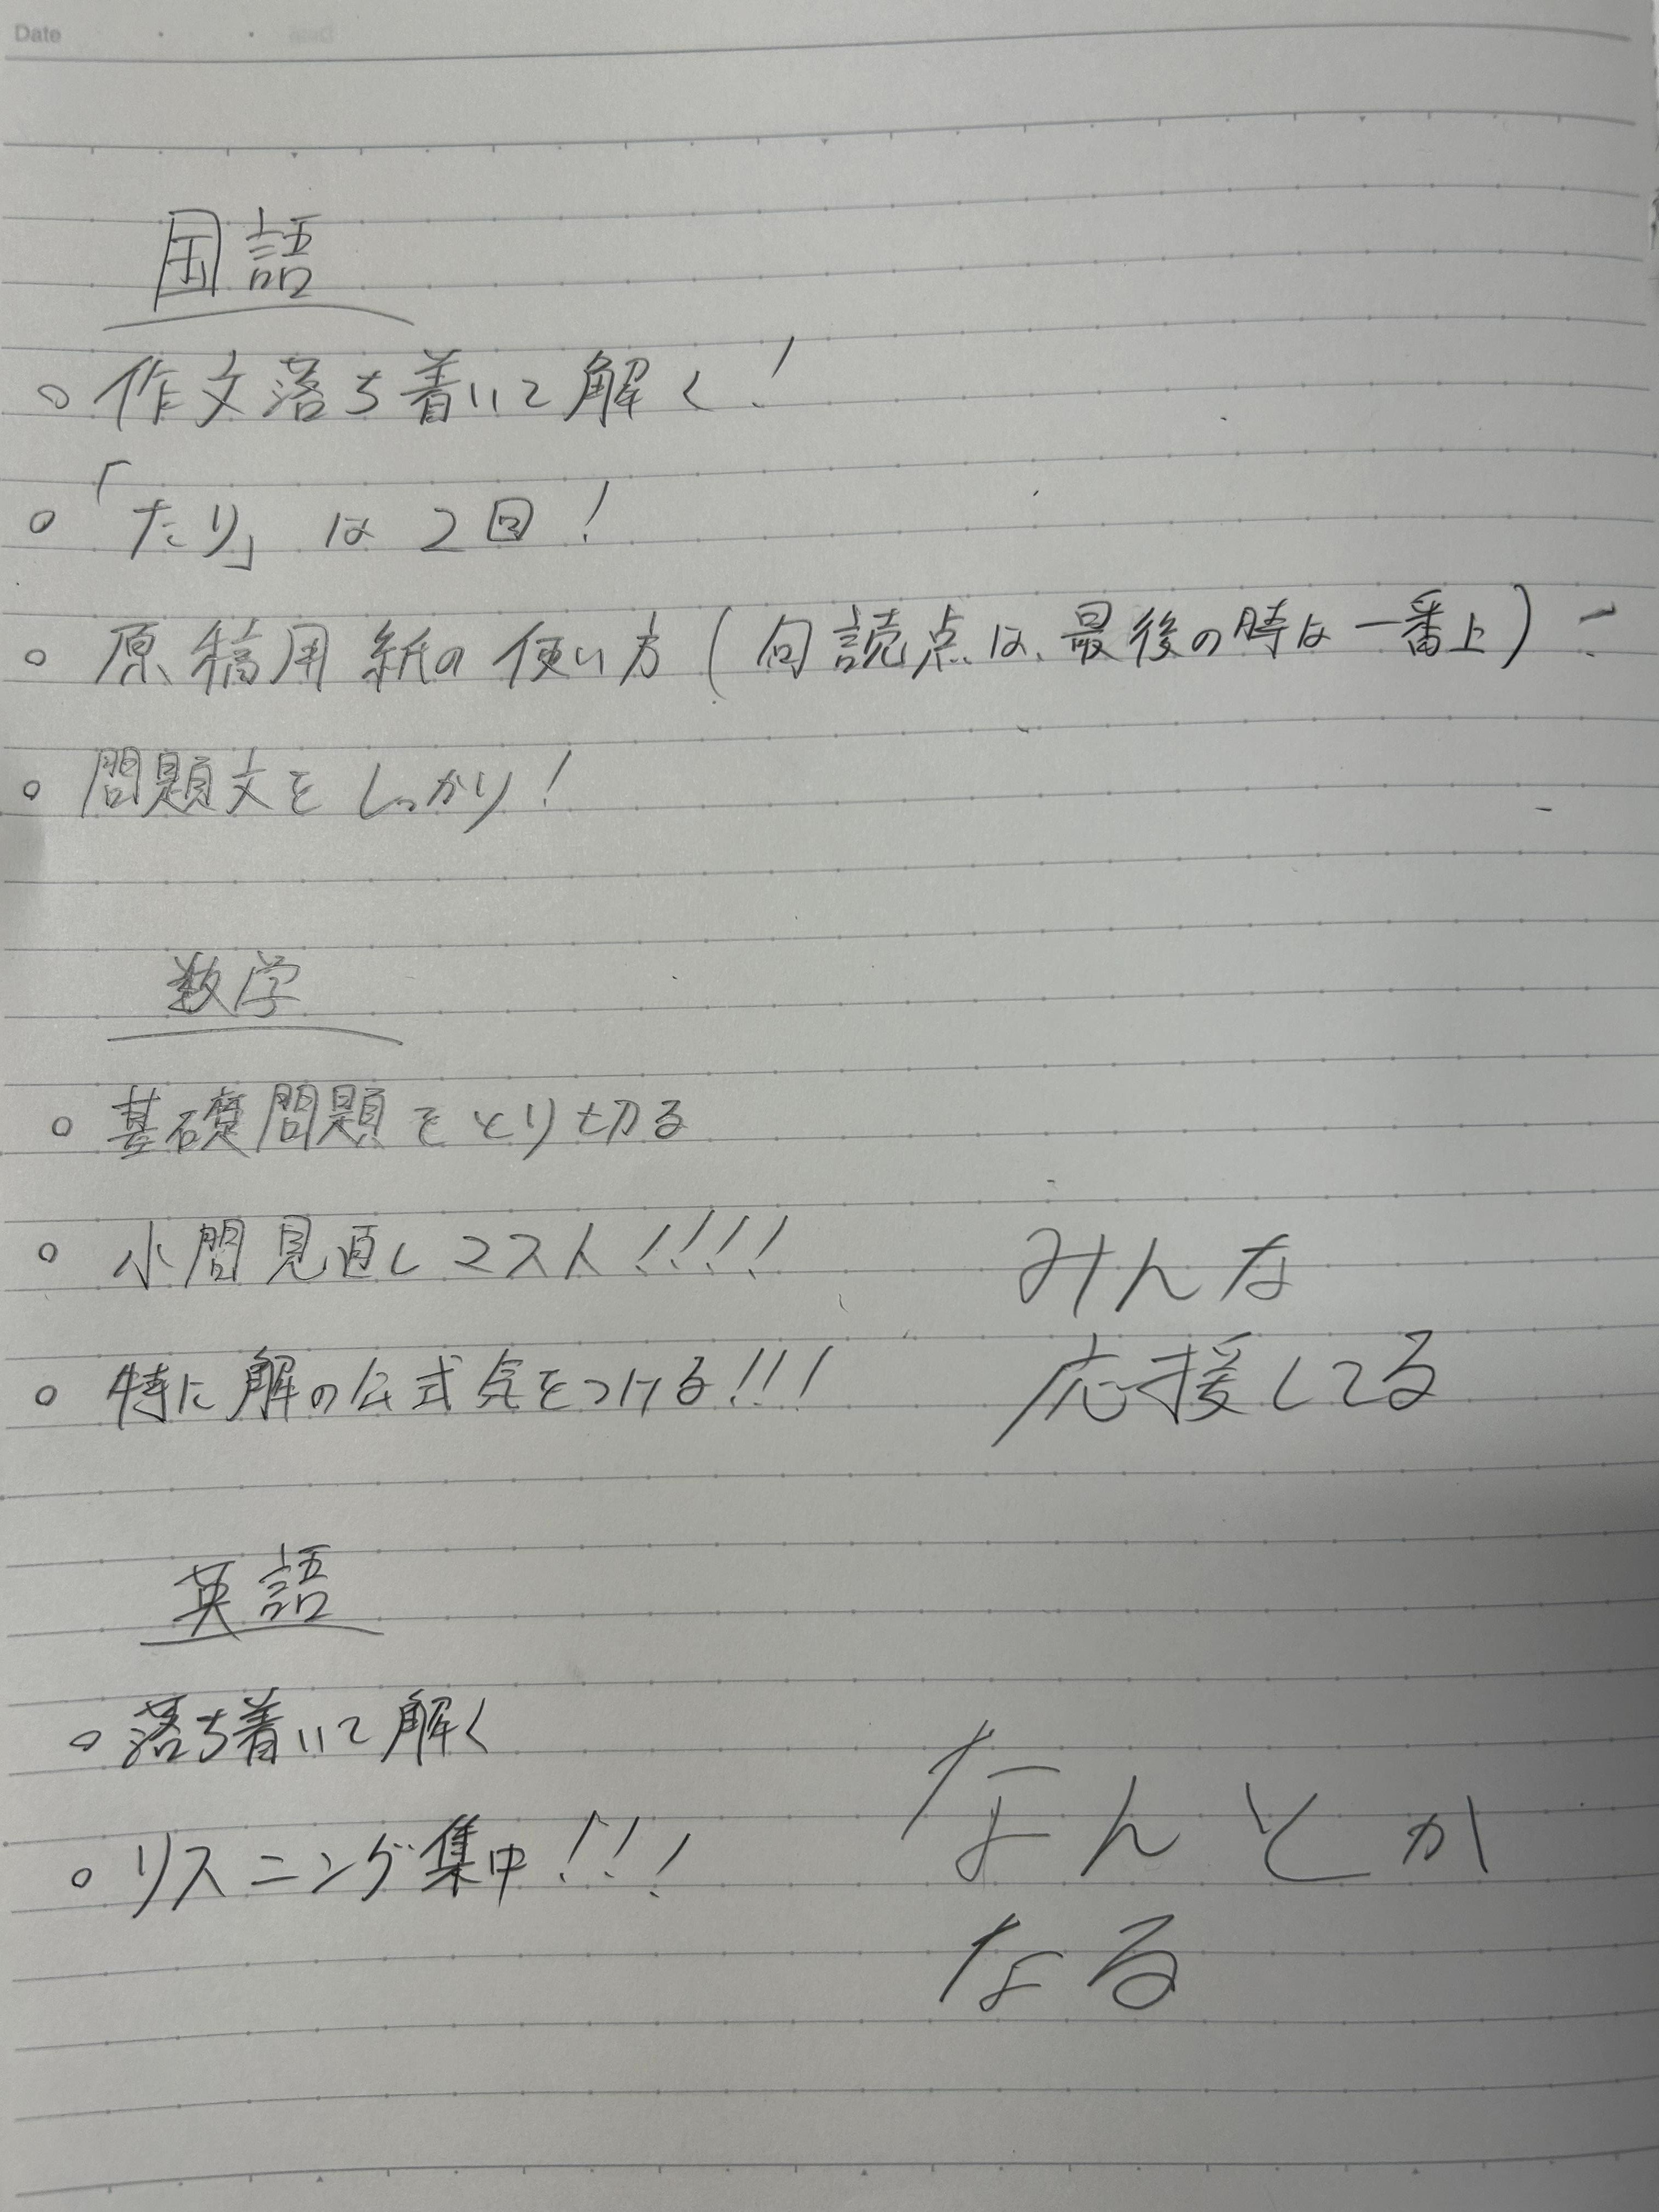 Date
国語
○ 作文落ち着いて解く!
○ 「たり」は2回!
○ 原稿用紙の使い方(句読点は、最後の時は一番上)
○ 問題文をしっかり!
数学
○ 基礎問題をとり切る
○ 小問見直しマスト!!!!
○ 特に解の公式気をつける!!!
みんな
応援してる
英語
○ 落ち着いて解く
○ リスニング集中!!!
なんとか
なる